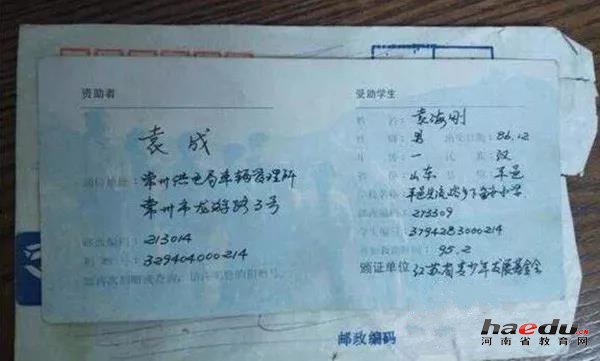 资助者
袁成
通信地址：常州供电局车辆管理所
常州市龙游路3号
邮政编码：213014
329404000214
受助学生
姓 名：袁海刚
性 别：男 出生日期：86.12
年 级：一 民 族：汉
省 份：山东 平邑
学校名称：
邮政编码：273309
学生编号：3794283000214
95.2
颁证单位：江苏省青少年发展基金会
邮政编码
haedu.cn
河南省教育网